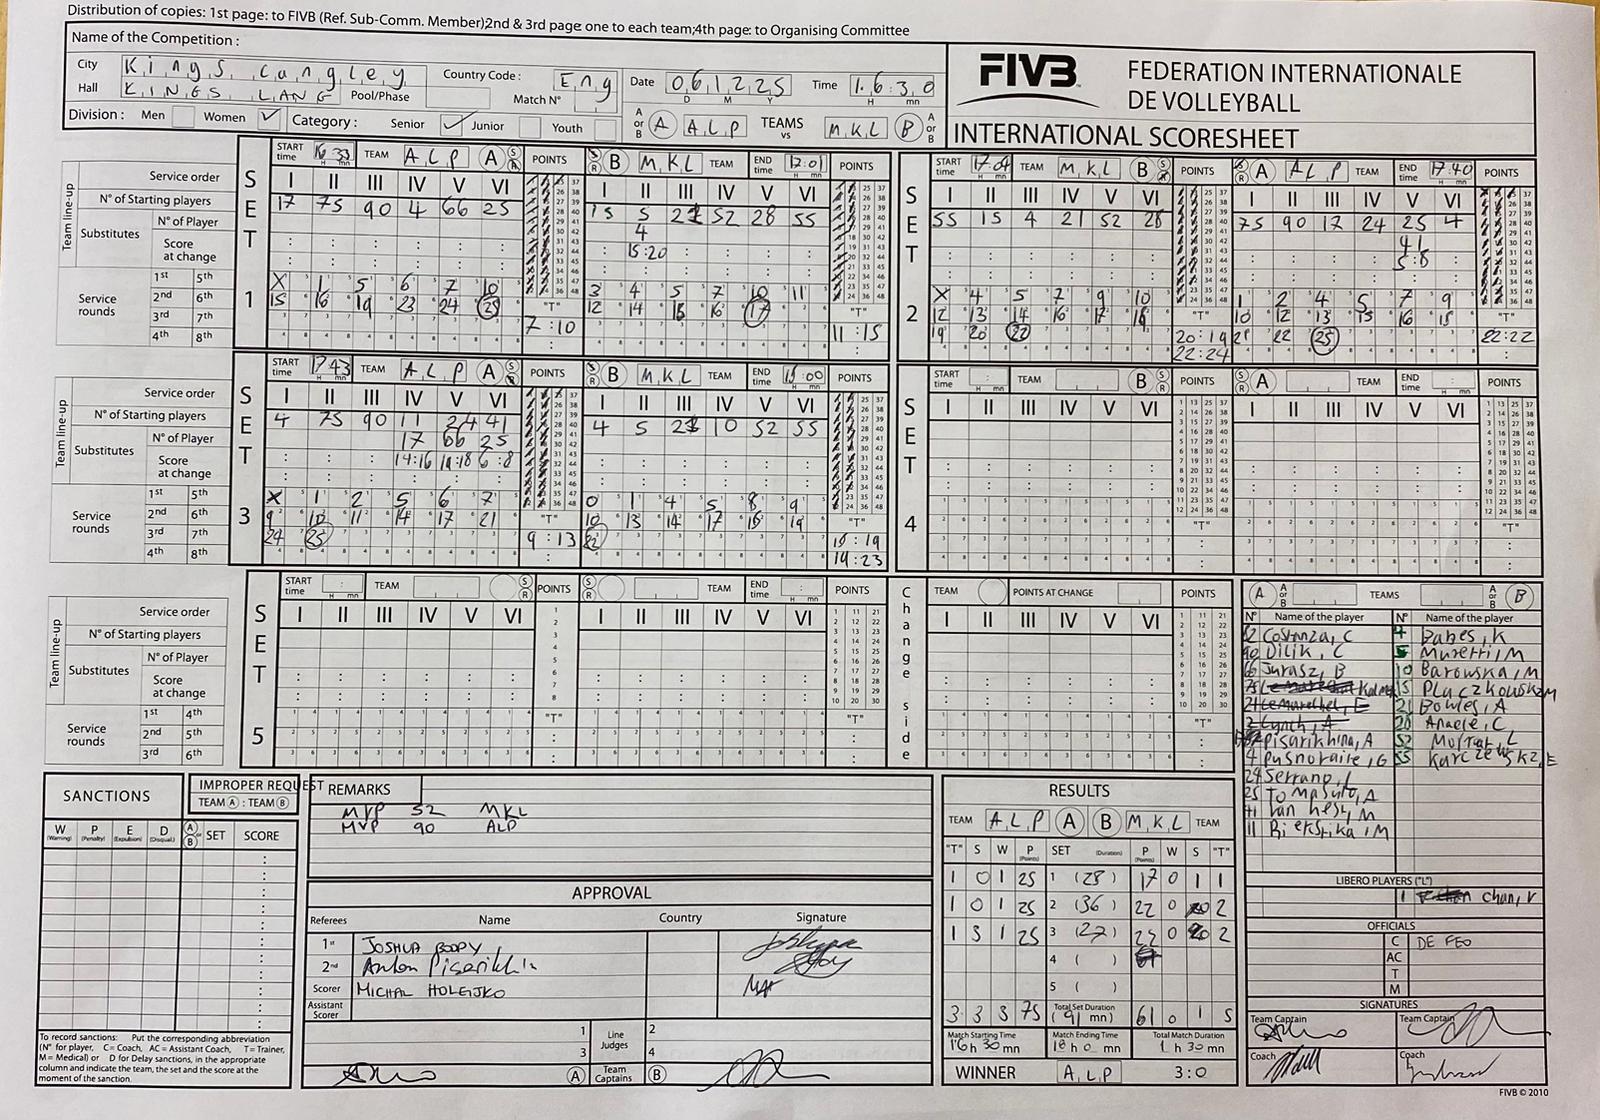 Distribution of copies: 1st page: to FIVB (Ref. Sub-Comm. Member)2nd & 3rd page one to each team;4th page: to Organising Committee
Name of the Competition :
City Kings Langley Country Code : Eng Date 06 12 25 Time 16:30
Hall KINGS LANG Pool/Phase Match N°
Division : Men Women ✓ Category : Senior ✓ Junior Youth A or B A ALP TEAMS vs MKL B A or B
FIVB FEDERATION INTERNATIONALE DE VOLLEYBALL
INTERNATIONAL SCORESHEET
SET 1
START time 16 33 TEAM ALP A POINTS B MKL TEAM END time POINTS
Service order I II III IV V VI I II III IV V VI
N° of Starting players 17 75 90 4 66 25 15 5 21 52 28 55
Substitutes N° of Player 4
Score at change 15:20
Service rounds
1st 5th X 1 5 6 7 10 3 4 5 7 10 11
2nd 6th 15 16 19 23 24 25 12 14 15 16 17
3rd 7th
4th 8th
"T" 7:10 "T" 11:15
SET 2
START time 17:04 TEAM MKL B POINTS A ALP TEAM END time 17:40 POINTS
I II III IV V VI I II III IV V VI
55 15 4 21 52 28 75 90 17 24 25 4
41
5:8
X 4 5 7 9 10 1 2 4 5 7 9
12 13 14 16 17 18 10 12 13 15 16 18
19 20 22 21 22 25
"T" 20:19 22:24 "T" 22:22
SET 3
START time 17 43 TEAM ALP A POINTS B MKL TEAM END time POINTS
Team line-up
Service order I II III IV V VI I II III IV V VI
N° of Starting players 4 75 90 11 24 41 4 5 21 10 52 55
Substitutes N° of Player 17 66 25
Score at change 14:16 6:8
Service rounds
1st 5th X 1 2 5 6 7 0 1 4 5 8 9
2nd 6th 9 10 11 14 17 21 10 13 14 17 18 19
3rd 7th 24 25 22
4th 8th
"T" 9:13 "T" 18:19 19:23
SET 4
START time TEAM B POINTS A TEAM END time POINTS
I II III IV V VI I II III IV V VI
"T" "T"
SET 5
START time TEAM POINTS TEAM END time POINTS
Change side
TEAM POINTS AT CHANGE POINTS
Team line-up
Service order I II III IV V VI I II III IV V VI I II III IV V VI
N° of Starting players
Substitutes N° of Player
Score at change
Service rounds
1st 4th
2nd 5th
3rd 6th
A A or B TEAMS A or B B
N° Name of the player N° Name of the player
Costanza, C
90 Dilik, C
66 Jurasz, B
75
Pisarikhina, A
4
24 Serrano
25
41 Van Hest, M
11
4 Banes, K
5 Muzetti, M
10 Barowska, M
15
21 Bowles, A
28
52
55
LIBERO PLAYERS ("L")
1 Chan, V
OFFICIALS
C DE FEO
AC
T
M
SIGNATURES
Team Captain Team Captain
Coach Coach
SANCTIONS
W (Warning) P (Penalty) E (Expulsion) D (Disqual.) A or B SET SCORE
To record sanctions: Put the corresponding abbreviation
(N° for player, C= Coach, AC = Assistant Coach, T= Trainer,
M = Medical) or D for Delay sanctions, in the appropriate
column and indicate the team, the set and the score at the
moment of the sanction.
IMPROPER REQUEST
TEAM A : TEAM B
REMARKS
MVP 52 MKL
MVP 90 ALP
APPROVAL
Referees Name Country Signature
1st JOSHUA BODDY
2nd Anton Pisarikhin
Scorer MICHAL HOLEJKO
Assistant Scorer
1 Line Judges 2
3 4
A Team Captains B
RESULTS
TEAM ALP A B MKL TEAM
"T" S W P (Points) SET (Duration) P (Points) W S "T"
1 0 1 25 1 (28) 17 0 1 1
1 0 1 25 2 (36) 22 0 0 2
1 3 1 25 3 (27) 22 0 0 2
4 ( )
5 ( )
3 3 3 75 Total Set Duration (91 mn) 61 0 1 5
Match Starting Time 16 h 30 mn Match Ending Time 18 h 0 mn Total Match Duration 1 h 30 mn
WINNER ALP 3:0
FIVB © 2010